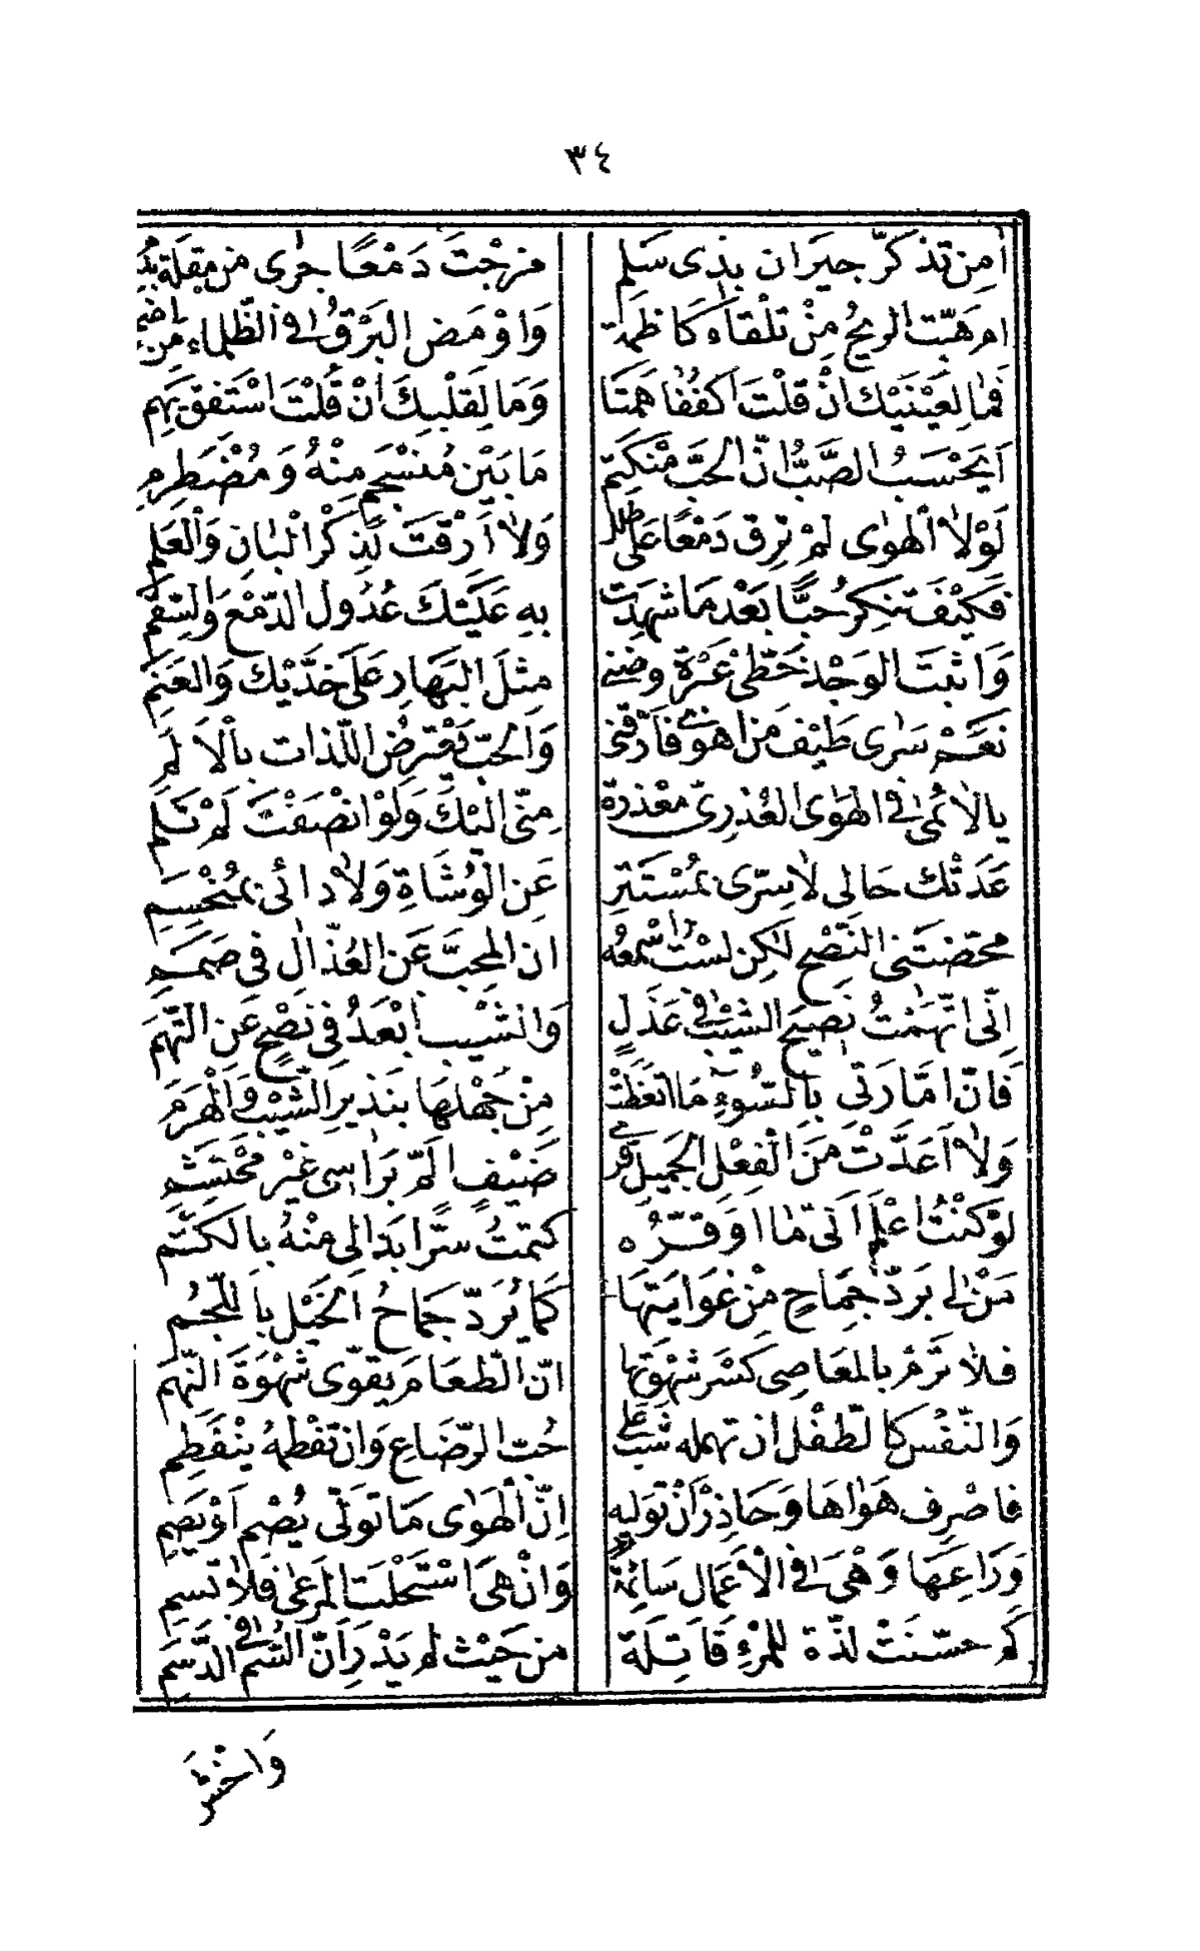 ٣٤
أمِن تذكّر جيرَان بذى سَلمِ مزجْتَ دَمْعًا جرٰى من مقلة بدَ
ام هَبّت الريحُ مِنْ تلْقاَءِ كاظمة وَاوْمَض البَرْقُ فى الظّلماءِ مِن اضم
فمٰا لِعَيْنَيْك انْ قلْتَ اَكفُفَا هَمتَا وَمَا لِقلْبِكَ انْ قُلْتَ اسْتَفق يَهِمِ
اَيَحْسَبُ الصَّبُّ انّ الحَبّ مْنكَتم مَا بَيْن مُنسَجمٍ منْهُ وَمُضْطرِمِ
لَوْلاٰ الْهَوٰى لمْ تُرِق دَمْعًا عَلى طلل وَلاٰ اَرْقَتَ لِذِكْر الْبٰان وَالْعَلم
فَكيْفَ تنكِرُ حُبًّا بَعْدمَا شهِدَت بهِ عَلَيْكَ عُدُول الدّمْع وَالسّقم
وَاثبَتَ الوَجْد خَطّىْ عَبْرَة وضنى مِثلَ البَهَارِ عَلى خَدَّيْك وَالعَنَم
نَعَمْ سَرٰى طَيْف مَن اهوى فَارّقنى وَالحبّ يَعْترِضُ اللّذات بالْاَلَم
يالائمى فى الهَوَى العُذرىّ معْذرة مِنّى اليْكَ وَلَوْ انْصَفْتَ لمْ تَلمِ
عَدَتْك حَالى لاٰ سِرّى بمُسْتَتِرٍ عَن الوُشَاةِ وَلاٰ دائى بمُنْحسِمِ
محّضتَنى النّصْح لٰكِن لسْتُ اَسْمعُه ان المحِبَّ عَن العُذّالِ فى صَمَم
اِنّى اتّهَمْتُ نَصِيحَ الشيْب فى عَذَلٍ وَالشيْب ابْعَدُ فِى نصْحٍ عَن التّهَم
فَانّ امّارَتى بالسُّوءِ مَا اتعَظَتْ مِنْ جَهْلهَا بنَذيرِ الشّيْب وَالْهَرَم
وَلاٰ اَعَدَّتْ مَنَ الْفِعْلِ الجَميلِ قرى ضَيْفٍ المّ برَاسِى غَيْر محْتَشم
لوْ كنْتُ اعْلم اَنى مَا اوَقّرُه كتمتُ سرًّا بَدا لى منْهُ بالكتَم
مَنْ لى برَدّ جِمَاحٍ مِنْ غوَايَتهَا كمَا يُرَدّ جَماحُ الخَيْل باللّجُم
فلاٰ تَرُمْ بالمعَاصِى كَسْر شهْوَتها انّ الطعَامَ يقوّى شهْوَةَ النّهَم
وَالنّفْس كالطفْل ان تهمله شَبّ عَلى حُبّ الرّضَاعِ وَان تفْطمْهُ ينْفَطِمِ
فاصْرِف هَوٰاهَا وَحَاذِرْ اَنْ تُوَليه اِنّ الْهَوٰى مَا تَوَلّى يُصْم اَوْ يَصِمِ
وَرَاعِهَا وَهْىَ فى الْاَعْمَال سَائمَة وَانْ هىَ اسْتَحْلَت المرْعٰى فَلاٰ تسِمِ
كم حسّنَتْ لذّة للمَرْءِ قَاتِلَة من حَيْث لم يَدْرِ اَنّ السّم فى الدّسَمِ
وَاخْشَ